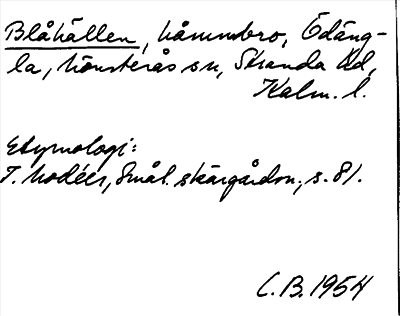 Blåhällen, hämmbro, Ödäng-
la, Mönsterås sn, Stranda hd,
Kalm. l.
Etymologi:
T. Modéer, Smål. skärgårdsn., s. 81.
C.B. 1954